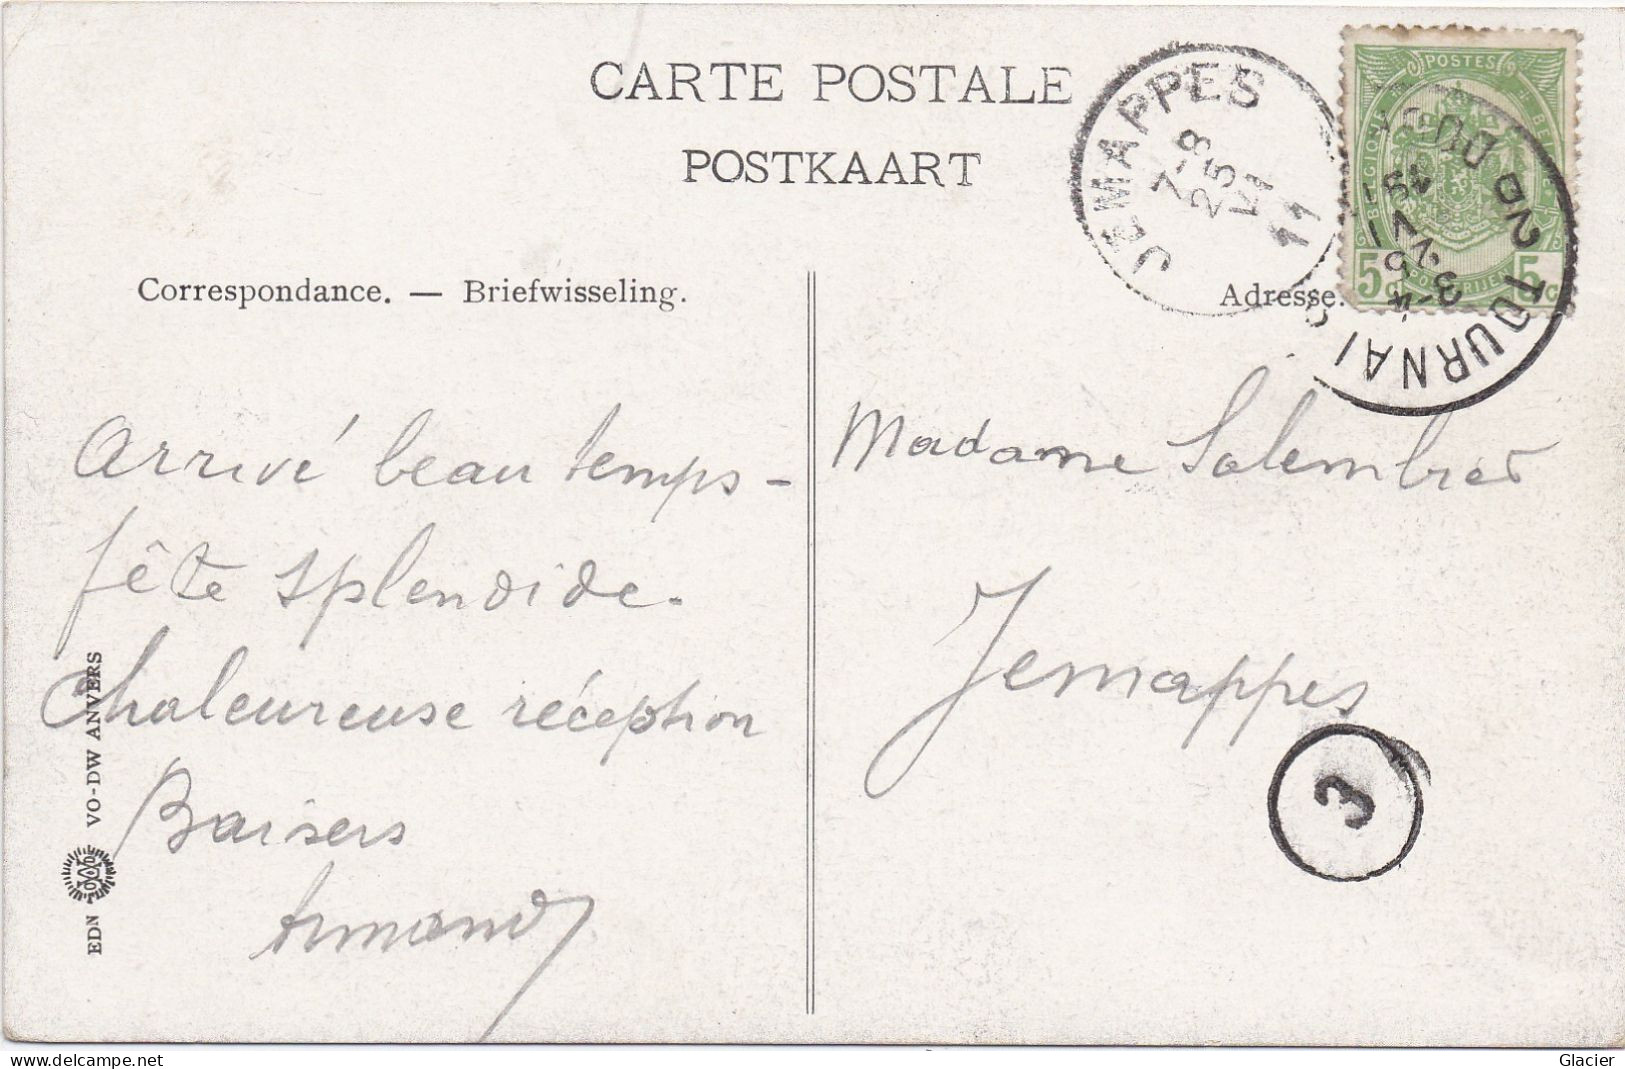 CARTE POSTALE
POSTKAART
JEMAPPES
7-8
25
VI
11
POSTES
BELGIQUE
5c 5c
TOURNAI
Correspondance. — Briefwisseling.
Adresse.
Arrivé beau temps -
fête splendide.
Chaleureuse réception
Baisers
Armand
Madame Salembier
Jemappes
3
EDN VO-DW ANVERS
www.delcampe.net
Glacier